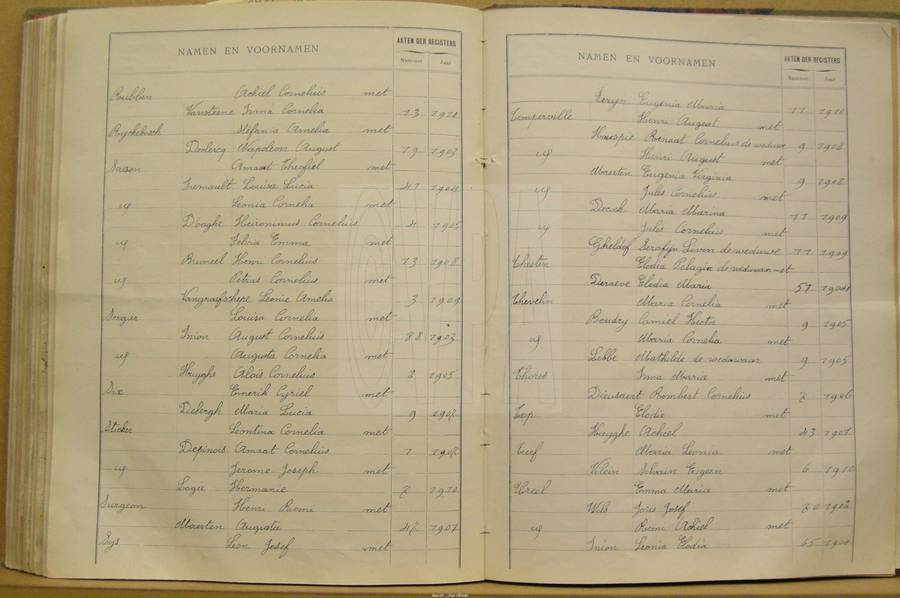 NAMEN EN VOORNAMEN AKTEN DER REGISTERS
Nummer Jaar
Rubben Achiel Cornelius met
Vansteene Irma Cornelia 13 1910
Ryckebosch Stefania Amelia met
Declercq Napoleon August 19 1903
Sason Amaat Theofiel met
Tremault Louisa Lucia 41 1904
id Leonia Cornelia met
D'oaghe Heironimus Cornelius 4 1905
id Felicia Emma met
Bruneel Henri Cornelius 13 1908
id Petrus Cornelius met
Vangraefschepe Leonie Amelia 3 1909
Louisa Cornelia met
Inion August Cornelius 88 1903
id Augusta Cornelia met
Huyghe Alois Cornelius 2 1905
Six Emerik Cyriel met
Debergh Maria Lucia 9 1902
Sticker Leontina Cornelia met
Depinois Amaat Cornelius 1 1902
id Jerome Joseph met
Logie Hermanie 2 1910
Surgeon Henri Remi met
Maerten Augusta 42 1907
Sys Leon Josef met
NAMEN EN VOORNAMEN AKTEN DER REGISTERS
Nummer Jaar
Seryn Eugenia Maria 11 1910
Temperville Henri August met
Renaat Cornelius de weduwe 9 1908
id Henri August met
Maerten Eugenia Virginia 9 1908
id Jules Cornelius met
Decock Maria Marina 11 1909
id Jules Cornelius met
Gheldof Serafyn Lieven de weduwe 11 1909
Thestin Elodia Pelagie de weduwaar met
Deraeve Elodia Maria 51 1904
Thevelin Maria Cornelia met
Boudry Camiel Hector 9 1905
id Maria Cornelia met
Lebbe Mathilde de weduwaar 9 1905
Thores Irma Maria met
Dieusaert Rombert Cornelius 2 1906
Top Elodie met
Huyghe Achiel 43 1901
Turf Maria Leonia met
Vilein Silvain Eugeen 6 1910
Ureel Emma Maria met
Joris Josef 20 1902
id Remi Achiel met
Inion Leonia Elodia 45 1904